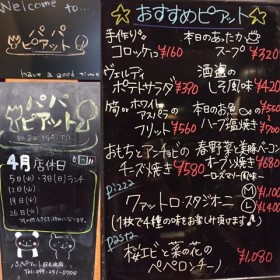 Welcome to...
パパ
ピアット
have a good time
パパ
ピアット
4月 店休日
5日(火)・3日(日)ランチ
12日(火)
19日(火)
26日(火)
☆おすすめピアット☆
手作り
コロッケ ¥160
本日のあったか
スープ ¥320
ヴェルディ
ポテトサラダ ¥390
しそ風味 ¥420
筒 ホワイト
アスパラの
フリット ¥560
本日のお魚の
ハーブ塩焼き
おもちとアンチョビの
チーズ焼き ¥580
春野菜と美豚ベーコン
オーブン焼 ¥680
ローズマリー風味
Pizza
クワットロ・スタジオーニ
(1枚で4種の味をお楽しみ頂けます♪)
M ¥1,100
L ¥1,400
Pasta
桜エビと菜の花の
ペペロンチーノ ¥1,080